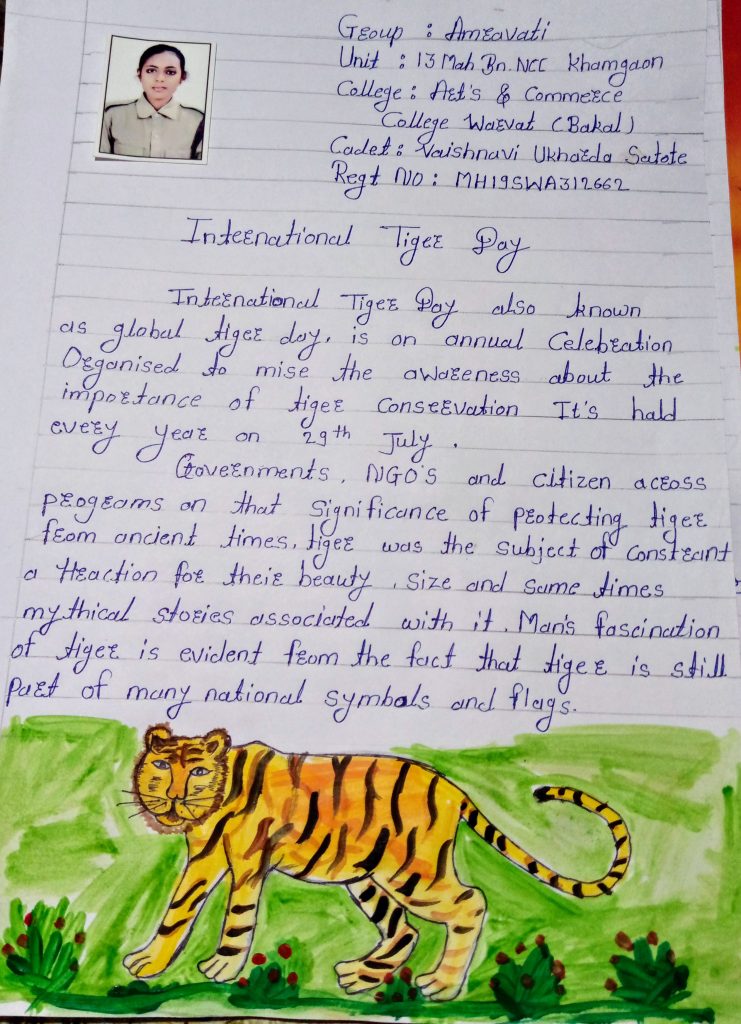 Group : Amravati
Unit : 13 Mah Bn. NCC Khamgaon
College : Art's & Commerce
College Warvat (Bakal)
Cadet : Vaishnavi Ukharda Satote
Regt NO : MH19SWA312662
International Tiger Day
International Tiger Day also known
as global tiger day, is on annual Celebration
Organised to mise the awareness about the
importance of tiger Conservation It's hald
every year on 29th July .
Governments, NGO'S and citizen across
programs on that significance of protecting tiger
from ancient times, tiger was the subject of Constrant
a ttraction for their beauty , size and same times
mythical stories associated with it. Man's fascination
of tiger is evident from the fact that tiger is still
Part of many national symbols and flags.